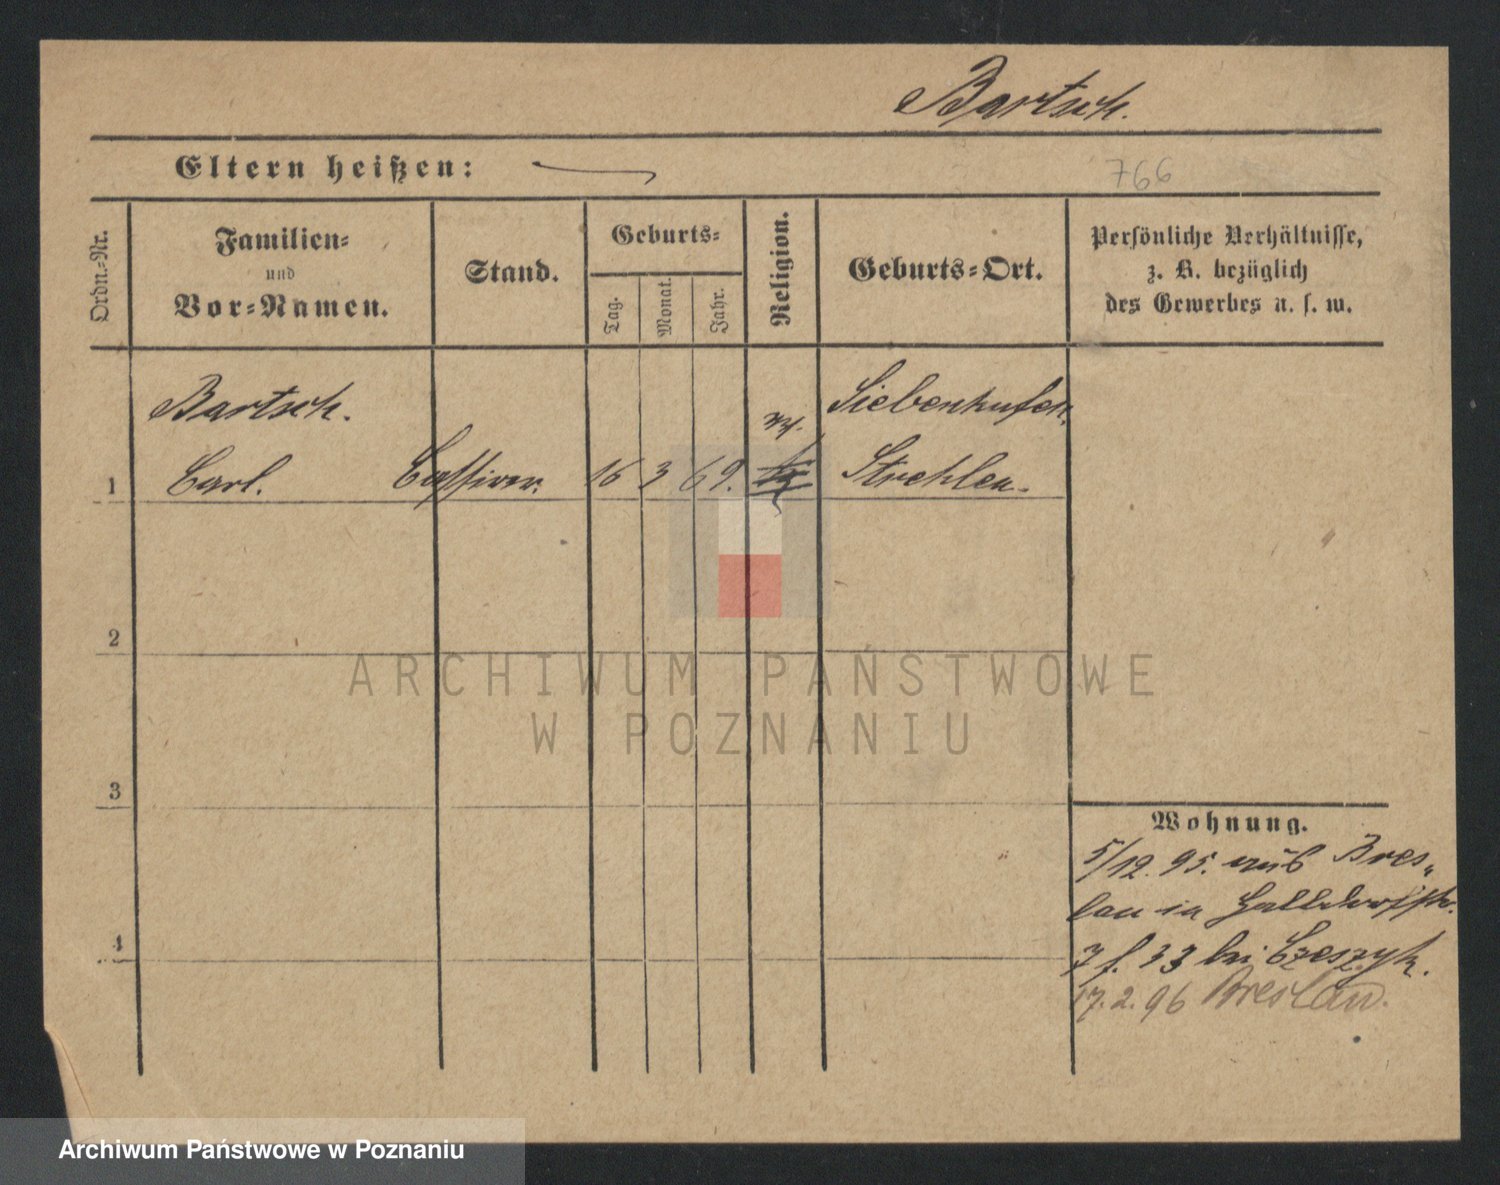 Bartsch.
Eltern heißen:
766
Ordn.-Nr.
Familien-
und
Vor-Namen.
Stand.
Geburts-
Tag.
Monat.
Jahr.
Religion.
Geburts-Ort.
Persönliche Verhältnisse,
z. B. bezüglich
des Gewerbes u. s. w.
Bartsch.
Siebenhufen,
1
Carl.
Cassirer.
16
3
69.
Strehlen.
2
ARCHIWUM PAŃSTWOWE
W POZNANIU
3
Wohnung.
5/12. 95. aus Bres-
lau in
4
33 bei Czeszyk.
17.2.96 Breslau.
Archiwum Państwowe w Poznaniu